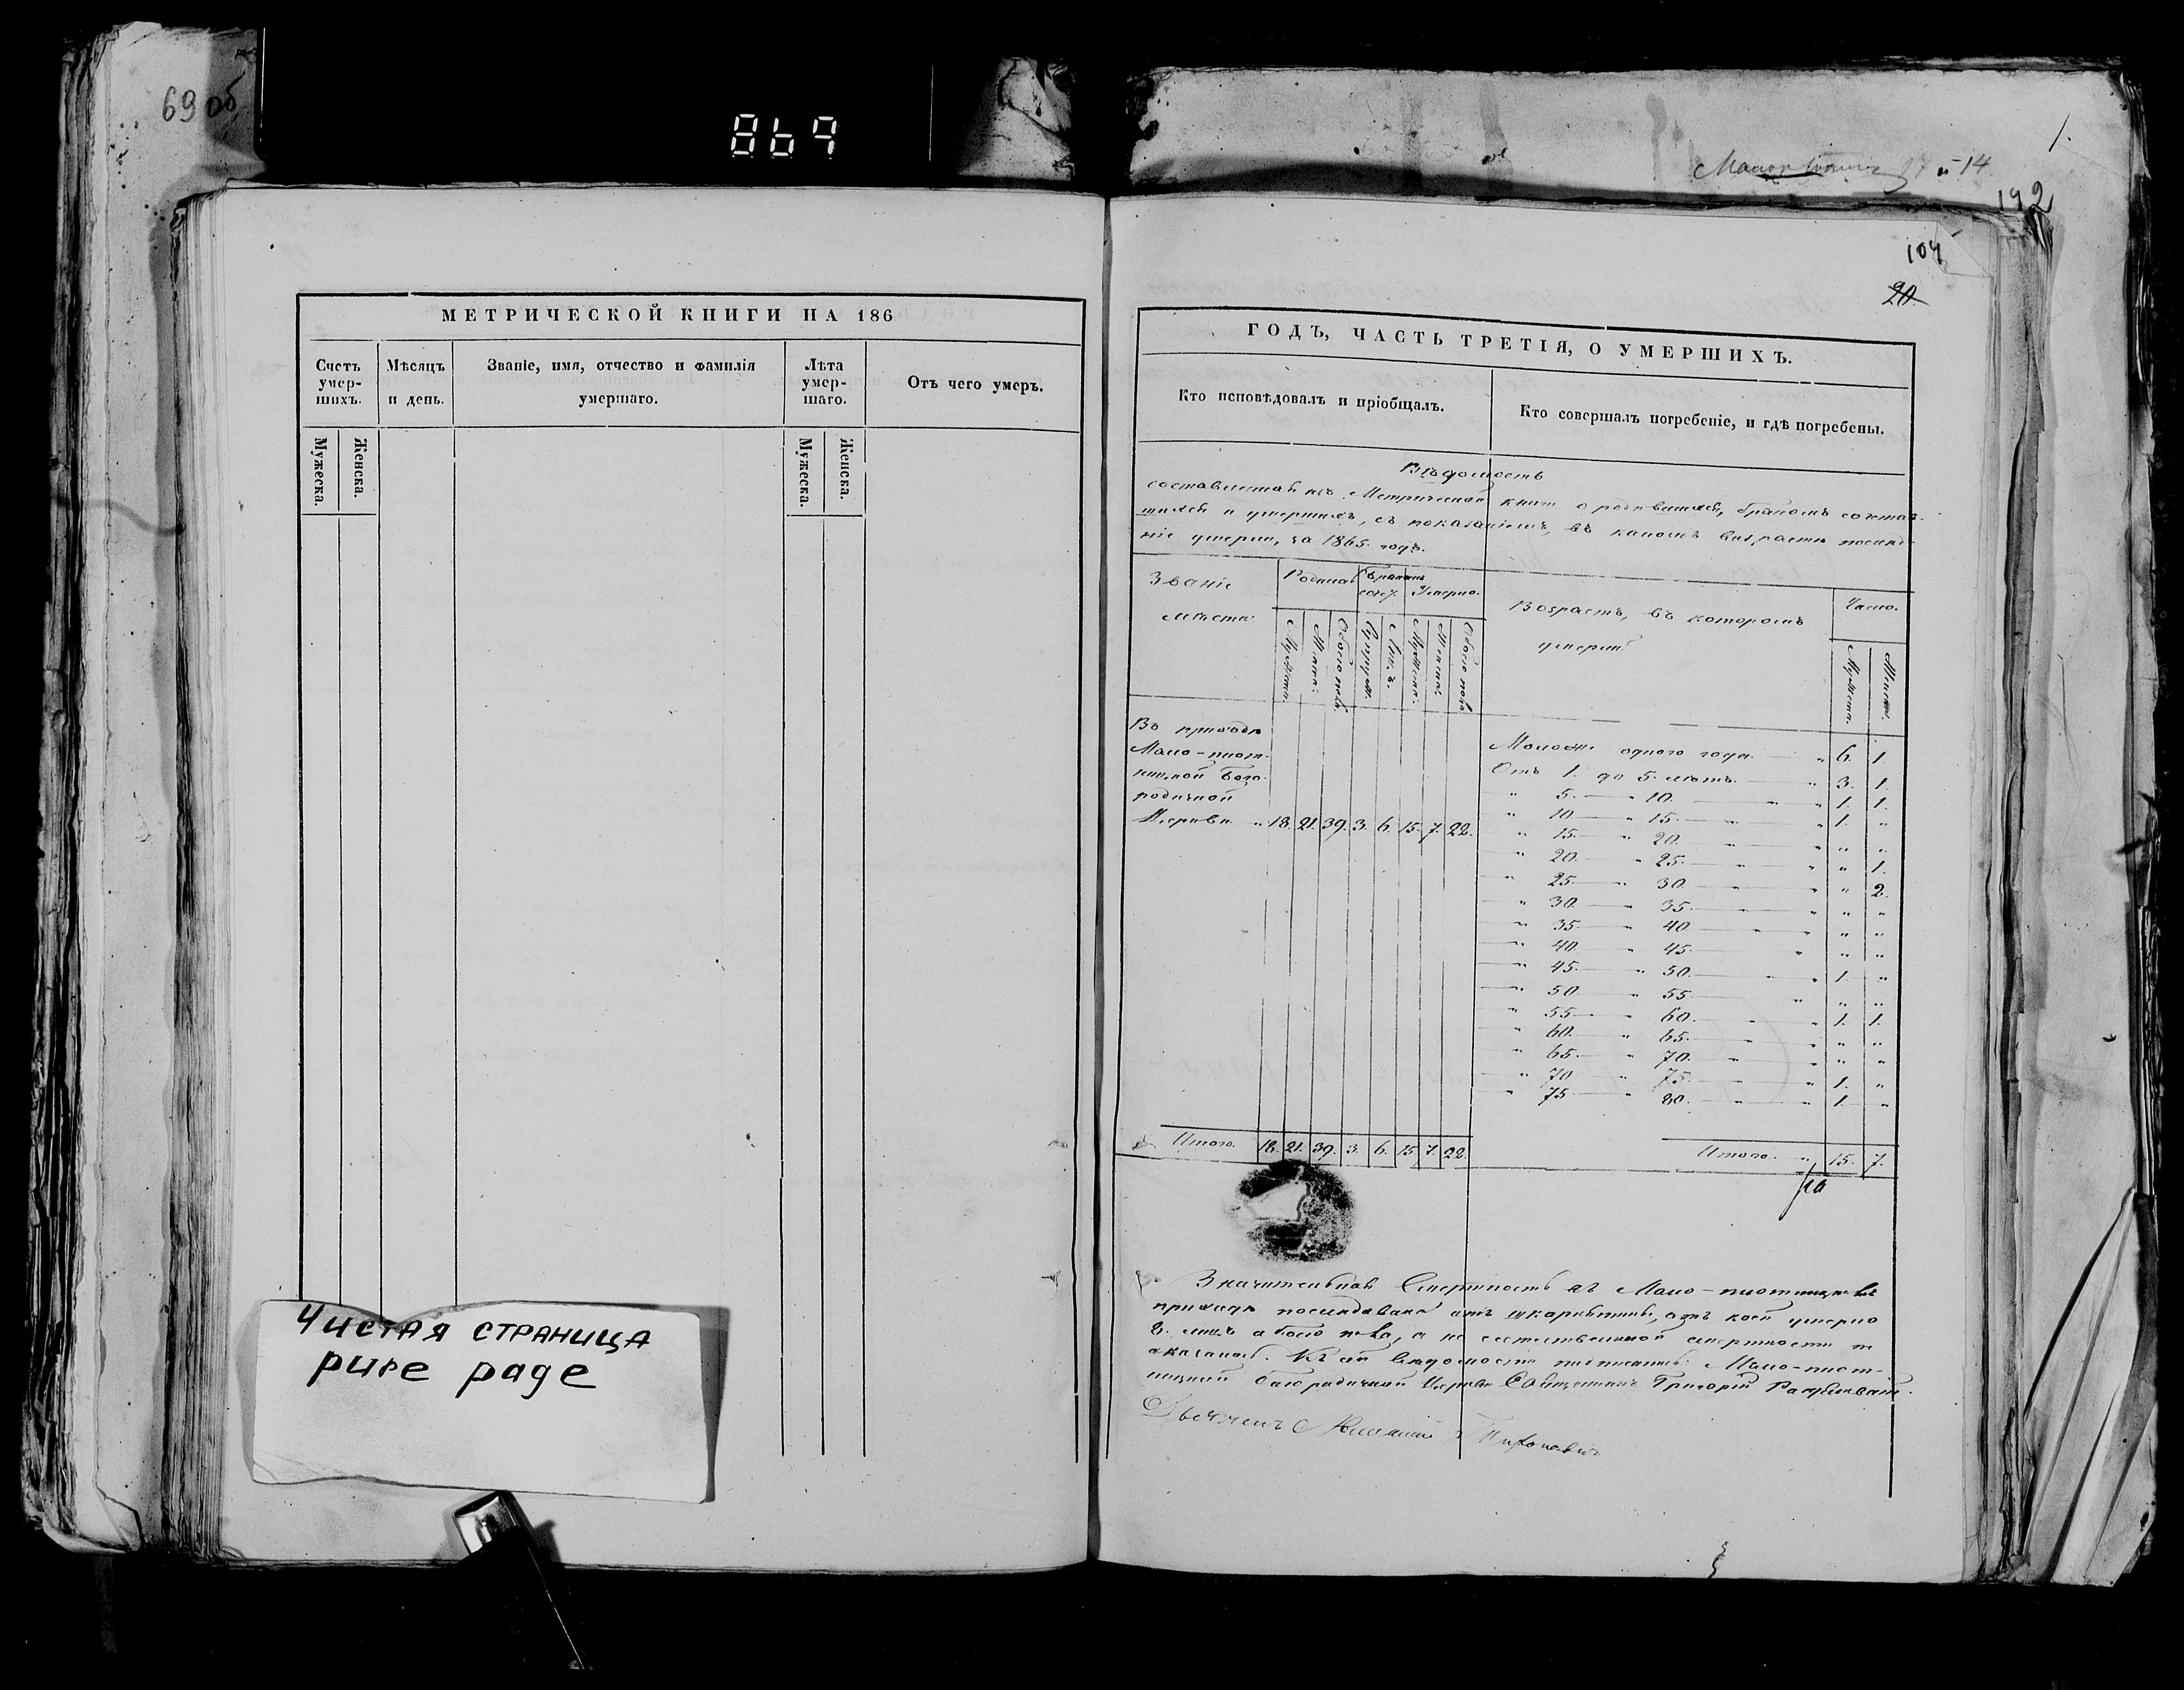 69 об
869
1.
и 14
142
104
20.
МЕТРИЧЕСКОЙ КНИГИ НА 186
Счетъ умер-шихъ.
Мѣсяцъ и день.
Званіе, имя, отчество и фамилія умершаго.
Лѣта умер-шаго.
Отъ чего умеръ.
Мужеска.
Женска.
Мужеска.
Женска.
Чистая страница
pure page
ГОДЪ, ЧАСТЬ ТРЕТІЯ, О УМЕРШИХЪ.
Кто исповѣдовалъ и пріобщалъ.
Кто совершалъ погребеніе, и гдѣ погребены.
Вѣдомость
составленная изъ Метрической книги о родившихся, бракомъ сочетав-
шихся и умершихъ, съ показаніемъ, въ какомъ возрастѣ послѣд-
ніе умерли, за 1865. годъ.
Званіе мѣста
Родилось
Бракомъ сочет.
Умерло.
Возрастъ, въ которомъ умерли
Число.
Мужеска.
Женска.
Обоего пола
Супруж.
Лицъ.
Мужеска.
Женска.
Обоего пола
Мужеска.
Женска.
Въ приходѣ
Мало-плот-
ницкой Бого-
родичной
Церкви " 18. 21. 39. 3. 6. 15. 7. 22.
Моложе одного года. " 6. 1.
Отъ 1. до 5. лѣтъ. " 3. 1.
" 5. " 10. " " 1. 1.
" 10. " 15. " " 1. "
" 15. " 20. " " " "
" 20. " 25. " " " 1.
" 25. " 30. " " " 2.
" 30. " 35. " " " "
" 35. " 40. " " " "
" 40. " 45. " " "
" 45. " 50. " " 1. "
" 50. " 55. " " "
" 55. " 60. " " 1. 1.
" 60. " 65. " " " "
" 65. " 70. " " " "
" 70. " 75. " " 1. "
" 75. " 80. " " 1. "
Итого. 18. 21. 39. 3. 6. 15. 7. 22.
Итого. " 15. 7.
Значительная Смертность въ Мало-плотницкомъ
приходѣ послѣдовала отъ скарлатины, отъ коей умерло
8. лицъ обоего пола, а не естественной смертности не
оказалось. Къ сей вѣдомости подписались: Мало-плот-
ницкой Богородичной Церкви Священникъ Григорій
Дьячекъ